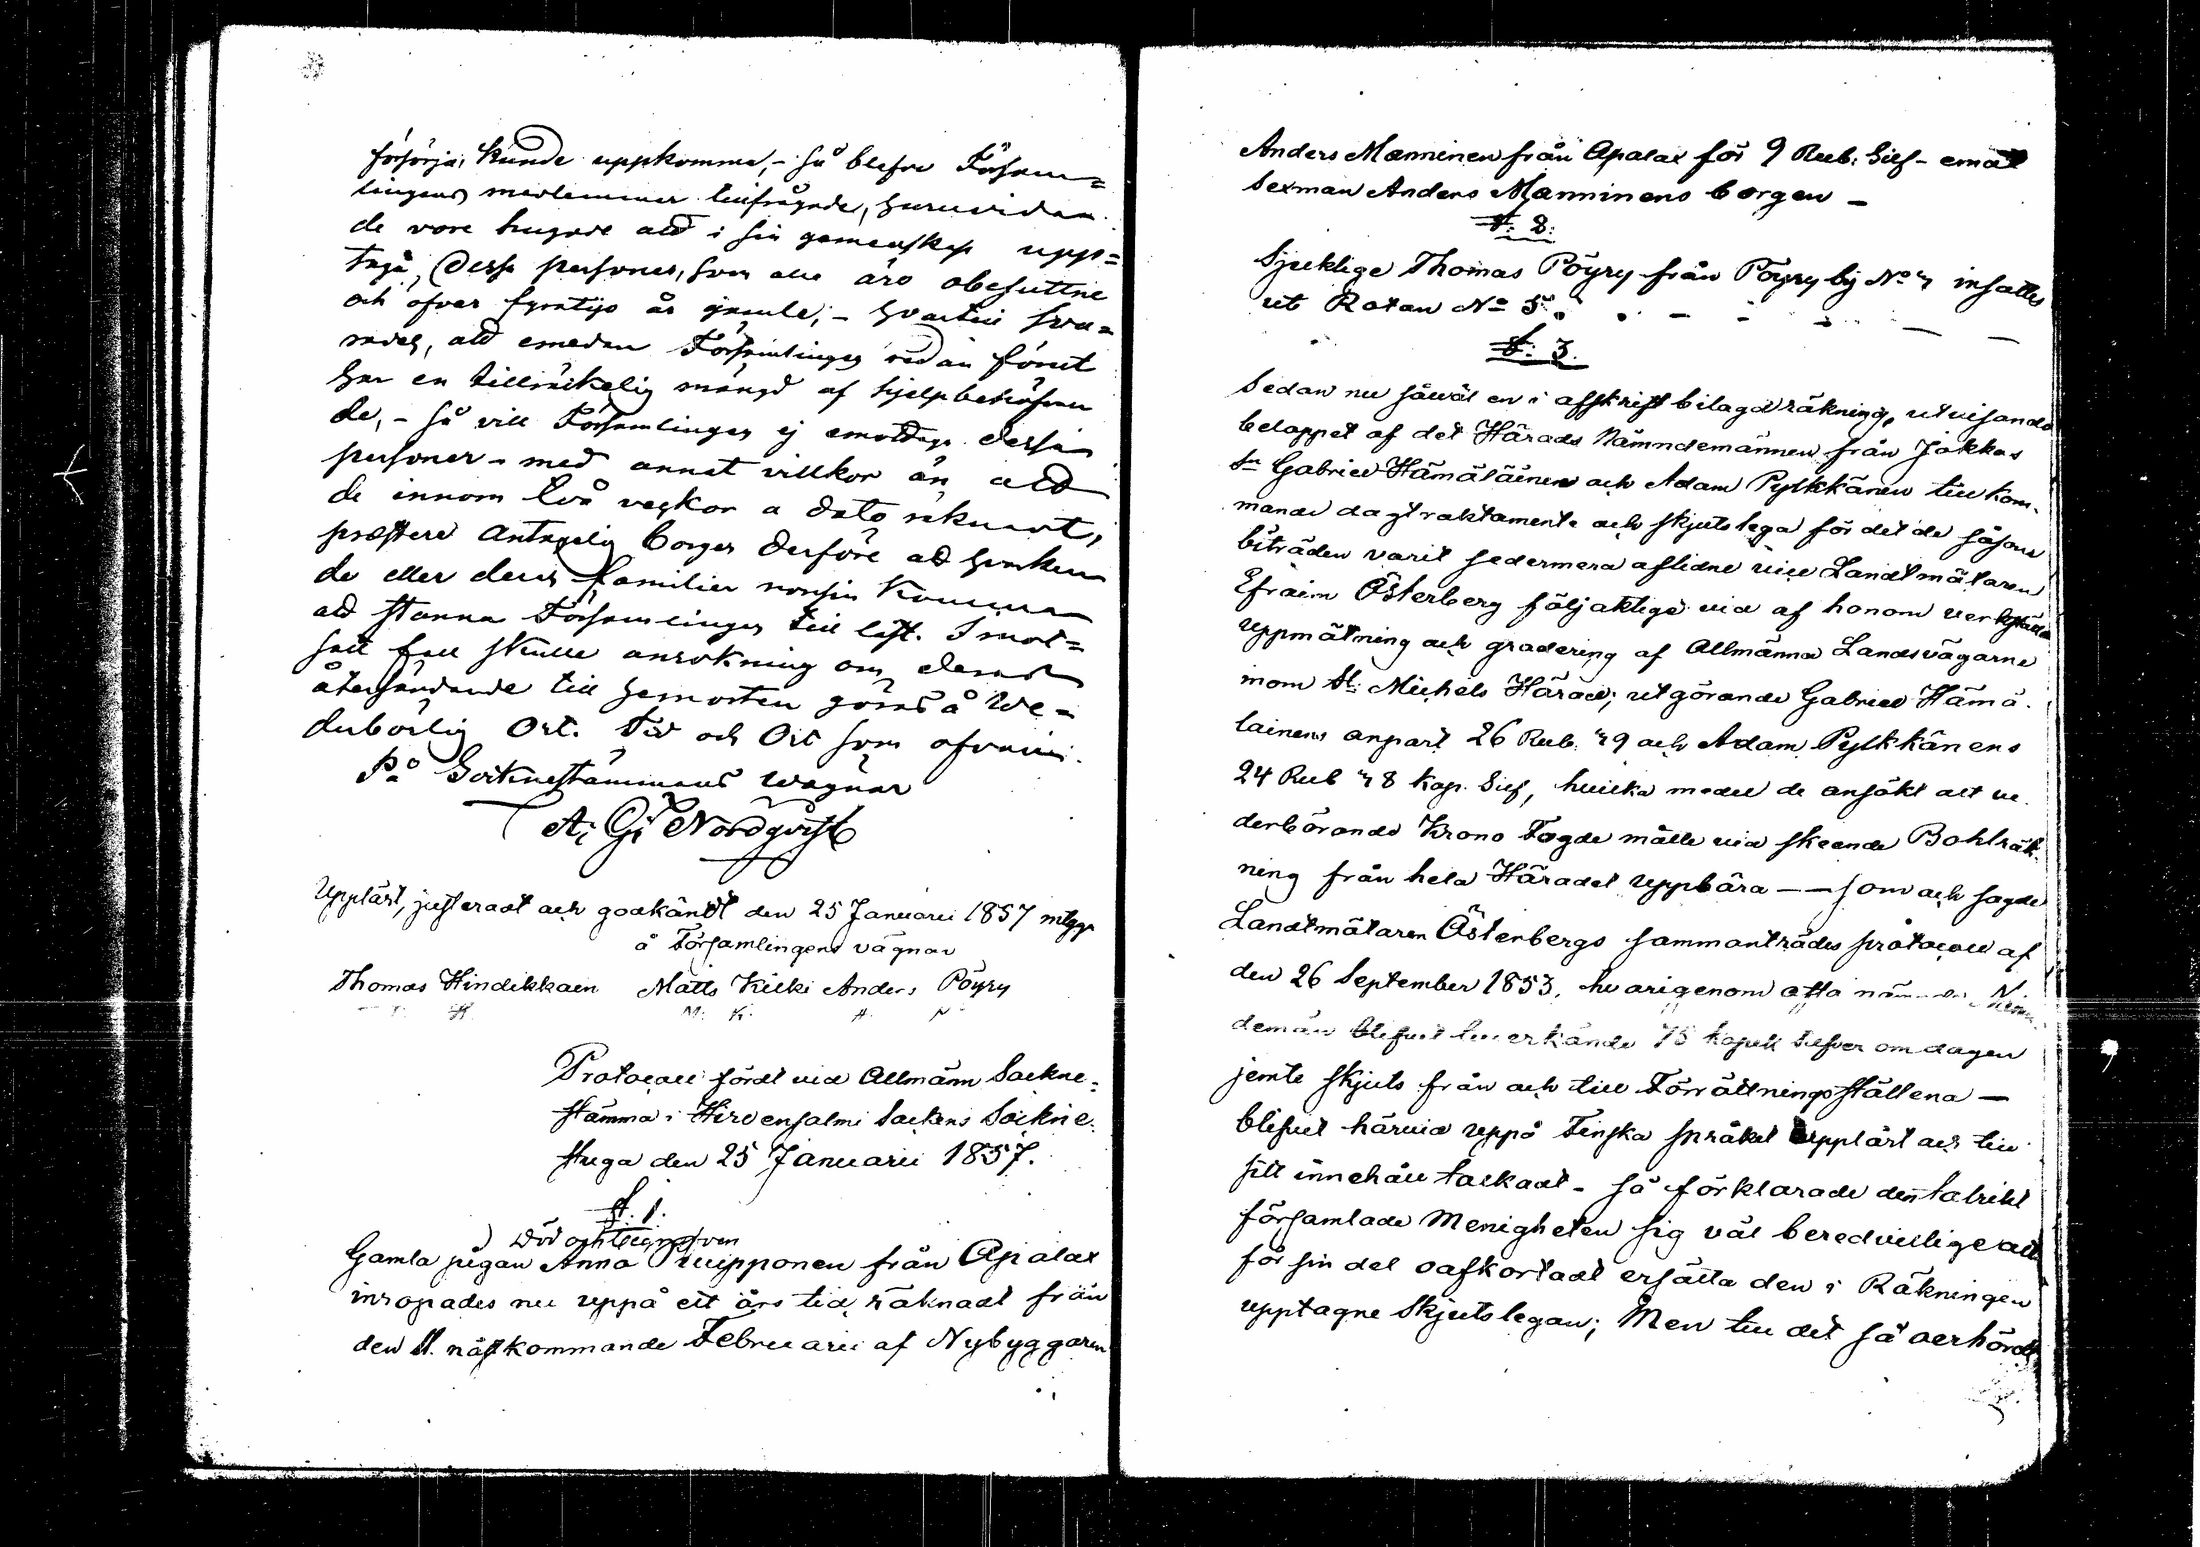 försörja, kunde uppkomma, - så blefvo Försam=
lingens medlemmar tillfrågade, huruvida
de vore hugade att i sin gemenskap upp=
taga, Dessa personer, som alla äro obesuttne
och öfver fyratio år gamle; - hvartill sva=
rades, att emedan Församlingen redan förut
har en tillräckelig mängd af hjelpbehöfvan
de, - så vill Församlingen ej emottaga dessa
personer - med annat villkor än att
de innom två veckor a dato räknadt,
præstera antagelig borgen derföre att hvarken
de eller deras familier någonsin komma
att stanna Församlingen till last. I mot=
satt fall skulle ansökning om deras
återsändande till hemorten göras å We=
derbörlig Ort. Tid och Ort som ofvan.
På Socknestämmans wägnar
A: G: Nordqvist
Uppläst, justeradt och godkändt den 25 Januarii 1857 intyga
å Församlingens vägnar
Thomas Hindikkain Matts Kilki Anders Pöyry
T. H. M. K. A. P.
Protocoll fördt vid Allmänn Sockne=
stämma i Hirvensalmi Sockens Sockne
stuga den 25 Januarii 1857.
§. 1.
Död och begrafven
Gamla pigan Anna Pruipponen från Apalax
inropades nu uppå ett års tid räknadt från
den 11. nästkommande Februarii af Nybyggaren
Anders Manninen från Apalax för 9 Rub: Silf- emot
Sexman Anders Manninens borgen -
§. 2.
Sjuklige Thomas Pöyry från Pöyry by No 4 insattes
ut Rotan No 5.
§. 3.
Sedan nu såwäl en i afskrift bilagd räkning, utvisande
beloppet af det Härads Nämndemännen från Jakkas
by Gabriel Hämäläinen och Adam Pylkkänen till kom-
mande dagtraktamente och skjutslega för det de såsom
biträden varit sedermera aflidne vice Landtmätaren
Efraim Österberg följaktige vid af honom verkstäld
uppmätning och gradering af Allmänna Landsvägarne
inom St: Michels Härad; utgörande Gabriel Hämä-
läinens anpart 26 Rub. 49 och Adam Pylkkänens
24 Rub 48 kop. Silf, hvilka medel de ansökt att ve
derbörande Krono Fogde måtte vid skeende Bohlräk-
ning från hela Häradet uppbära - - som och sagde
Landtmätaren Österbergs sammanträdes protocoll af
den 26 September 1853, hvarigenom ofta nämnde Nämn
demän blifvit tillerkände 75 kopek silfver om dagen
jemte skjuts från och till Förrättningsställena -
blifvit härvid uppå Finska språket uppläst och till
sitt innehåll tolkadt - så förklarade den talrikt
församlade Menigheten sig väl beredvillige att
för sin del oafkortadt ersätta den i Räkningen
upptagne Skjutslegan; Men till det så oerhördt